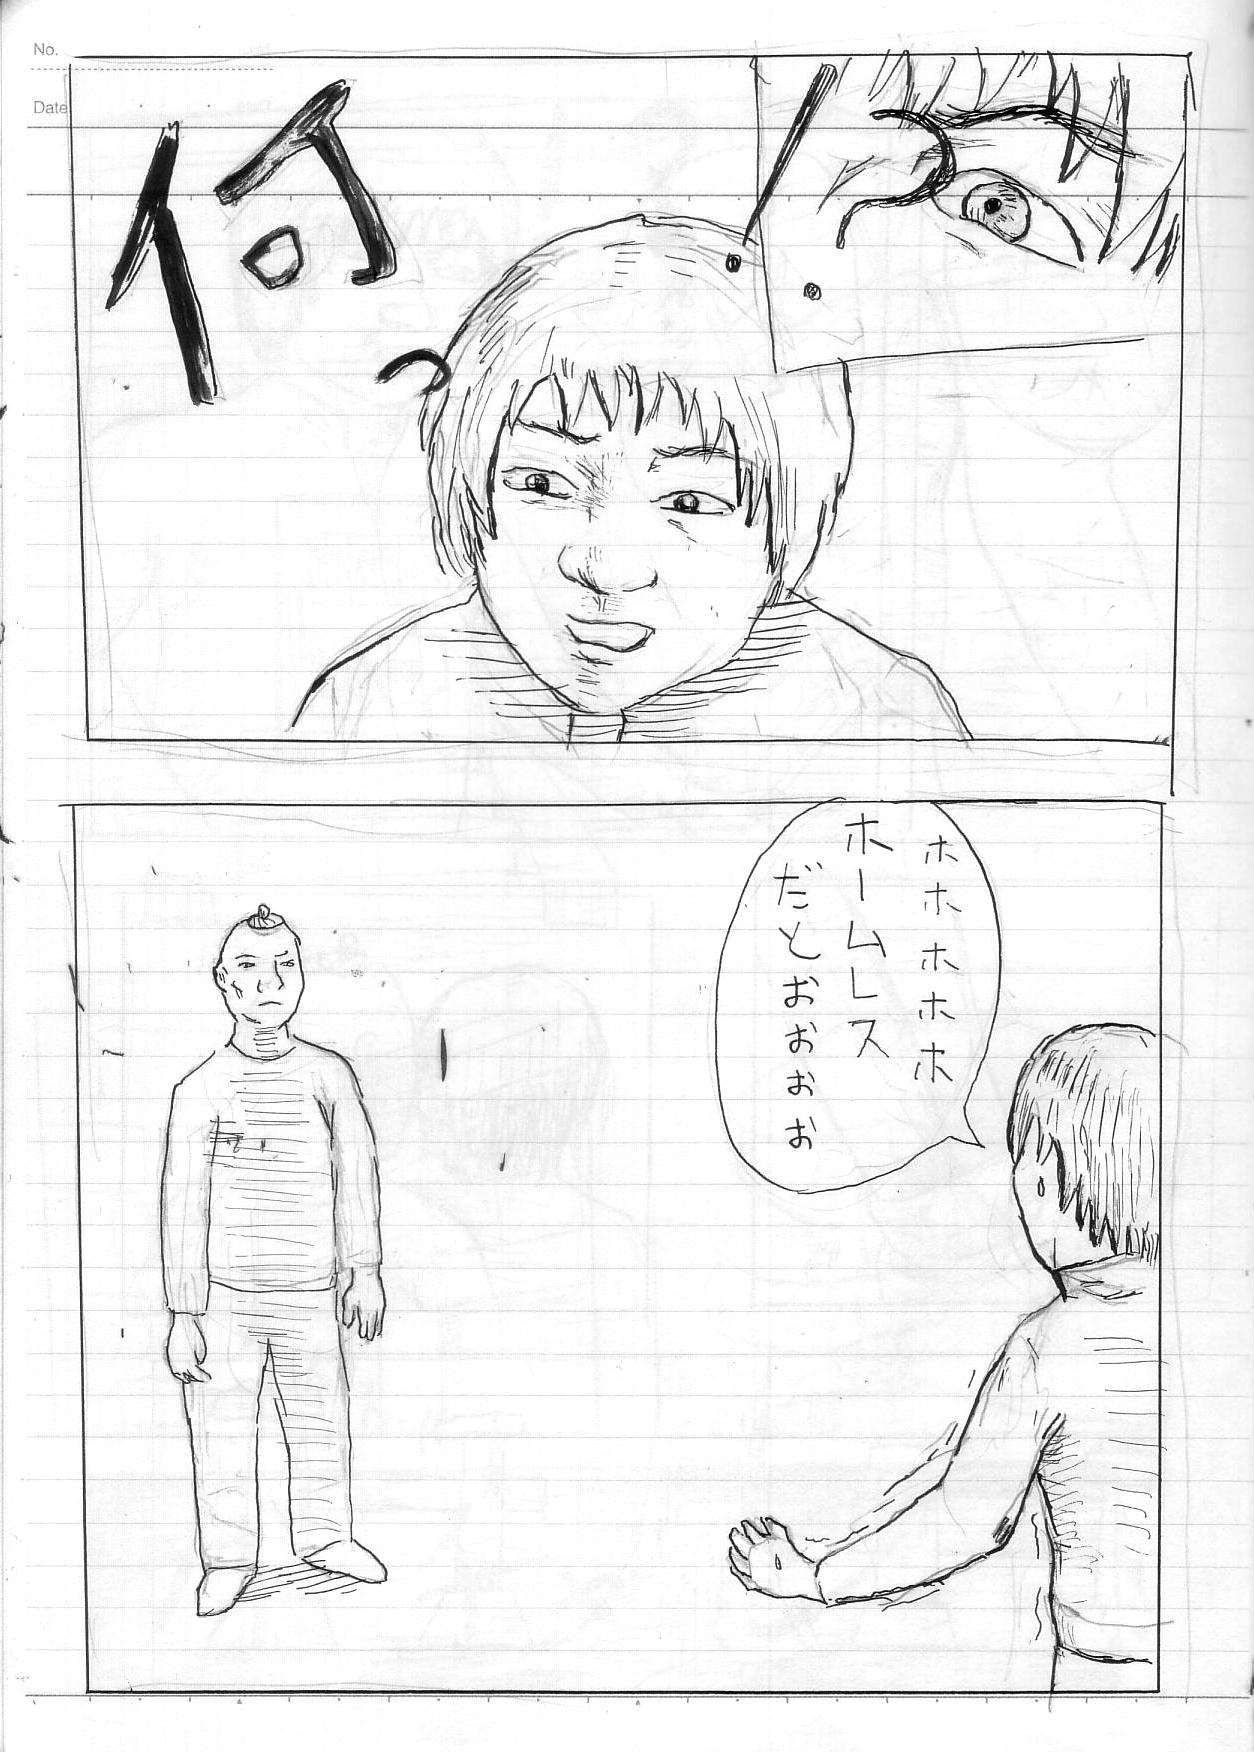 No.
Date
何っ!?
ホホホホホ
ホームレス
だとおぉぉぉ